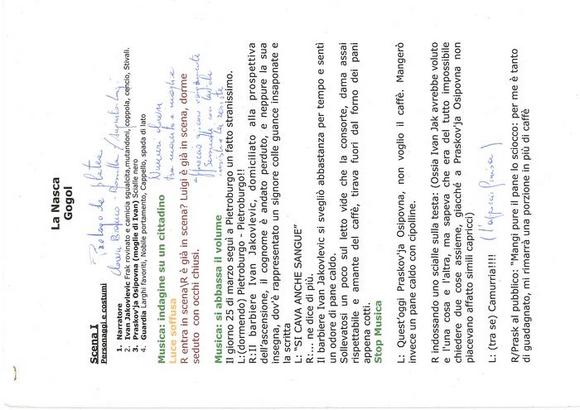 La Nasca
Gogol
Scena I
Personaggi e costumi
1. Narratore
2. Ivan Jakovlevic Frak rovinato e camicia sgualcita,mutandoni, coppola, cencio, Stivali.
3. Praskov'ja Osipovna (moglie di Ivan) Scialle nero
4. Guardia Larghi favoriti, Nobile portamento, Cappello, spada di lato
Musica: indagine su un cittadino
Luce soffusa
R entra in scena\R è già in scena? Luigi è già in scena, dorme
seduto con occhi chiusi.
Musica: si abbassa il volume
Il giorno 25 di marzo seguì a Pietroburgo un fatto stranissimo.
L:(dormendo) Pietroburgo - Pietroburgo!!
R:Il barbiere Ivan Jakovlevic, domiciliato alla prospettiva
dell'ascensione, il cognome è andato perduto, e neppure la sua
insegna, dov'è rappresentato un signore colle guance insaponate e
la scritta
L: "SI CAVA ANCHE SANGUE"
R:... ne dice di più.
Il barbiere Ivan Jakovlevic si svegliò abbastanza per tempo e sentì
un odore di pane caldo.
Sollevatosi un poco sul letto vide che la consorte, dama assai
rispettabile e amante del caffè, tirava fuori dal forno dei pani
appena cotti.
Stop Musica
L: Quest'oggi Praskov'ja Osipovna, non voglio il caffè. Mangerò
invece un pane caldo con cipolline.
R indossando scialle sulla testa: (Ossia Ivan Jak avrebbe voluto
e l'una cosa e l'altra, ma sapeva che era del tutto impossibile
chiedere due cose assieme, giacché a Praskov'ja Osipovna non
piacevano affatto simili capricci)
L: (tra se) Camurria!!!!
R/Prask al pubblico: "Mangi pure il pane lo sciocco: per me è tanto
di guadagnato, mi rimarrà una porzione in più di caffè